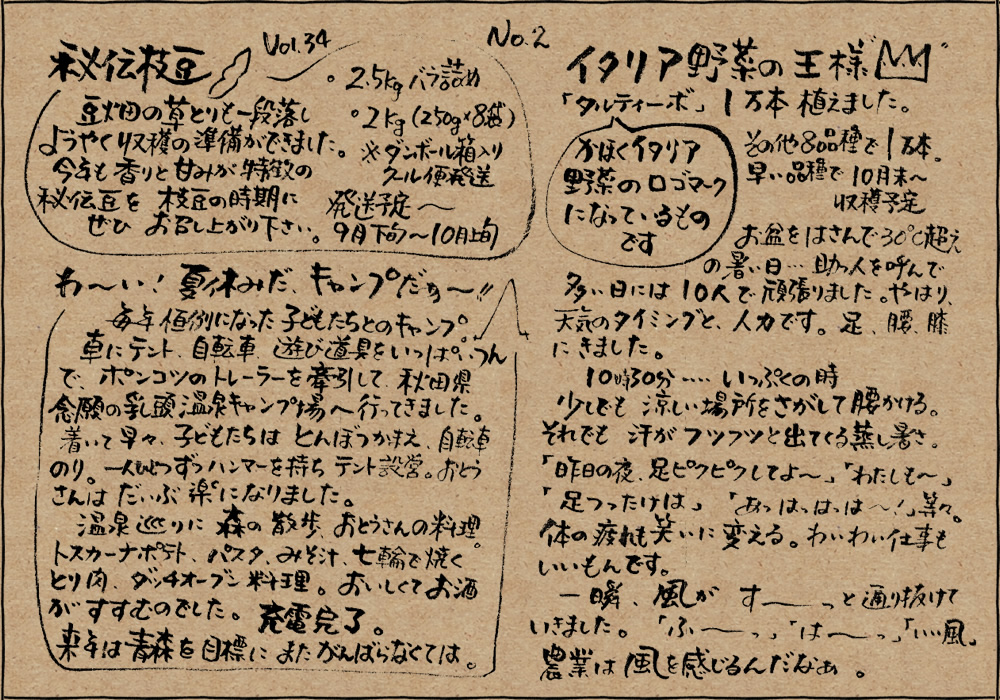 Vol.34
No.2
秘伝枝豆
豆畑の草とりも一段落し
ようやく収穫の準備ができました。
今年も香りと甘みが特徴の
秘伝豆を 枝豆の時期に
ぜひ お召し上がり下さい。
・2.5kg バラ詰め
・2kg (250g×8袋)
※ダンボール箱入り
クール便発送
発送予定〜
9月下旬〜10月上旬
わ〜い！夏休みだ、キャンプだぁ〜!!
毎年恒例になった子どもたちとのキャンプ。
車にテント、自転車、遊び道具をいっぱいつん
で、ポンコツのトレーラーを牽引して、秋田県
念願の乳頭温泉キャンプ場へ行ってきました。
着いて早々、子どもたちは とんぼつかまえ、自転車
のり。一人ひとつずつハンマーを持ち テント設営。おとう
さんは だいぶ 楽になりました。
温泉巡りに 森の散歩、おとうさんの料理。
トスカーナポテト、パスタ、みそ汁、七輪で焼く
とり肉、ダッチオーブン料理。おいしくてお酒
がすすむのでした。充電完了。
来年は青森を目標に またがんばらなくては。
イタリア野菜の王様
「タルティーボ」 1万本 植えました。
かほくイタリア
野菜のロゴマーク
になっているもの
です
その他8品種で1万本。
早い品種で10月末〜
収穫予定
お盆をはさんで30℃超え
の暑い日… 助っ人を呼んで
多い日には10人で頑張りました。やはり、
天気のタイミングと、人力です。足、腰、膝
にきました。
10時30分‥‥ いっぷくの時
少しでも 涼しい場所をさがして腰かける。
それでも 汗がフツフツと出てくる蒸し暑さ。
「昨日の夜、足ピクピクしてよ〜」「わたしも〜」
「足つったけは」 「あっはっはっは〜！」等々。
体の疲れも笑いに変える。わいわい仕事も
いいもんです。
一瞬、風が すーーっと通り抜けて
いきました。「ふーーっ」「はーーっ」「いい風」
農業は風を感じるんだなぁ。